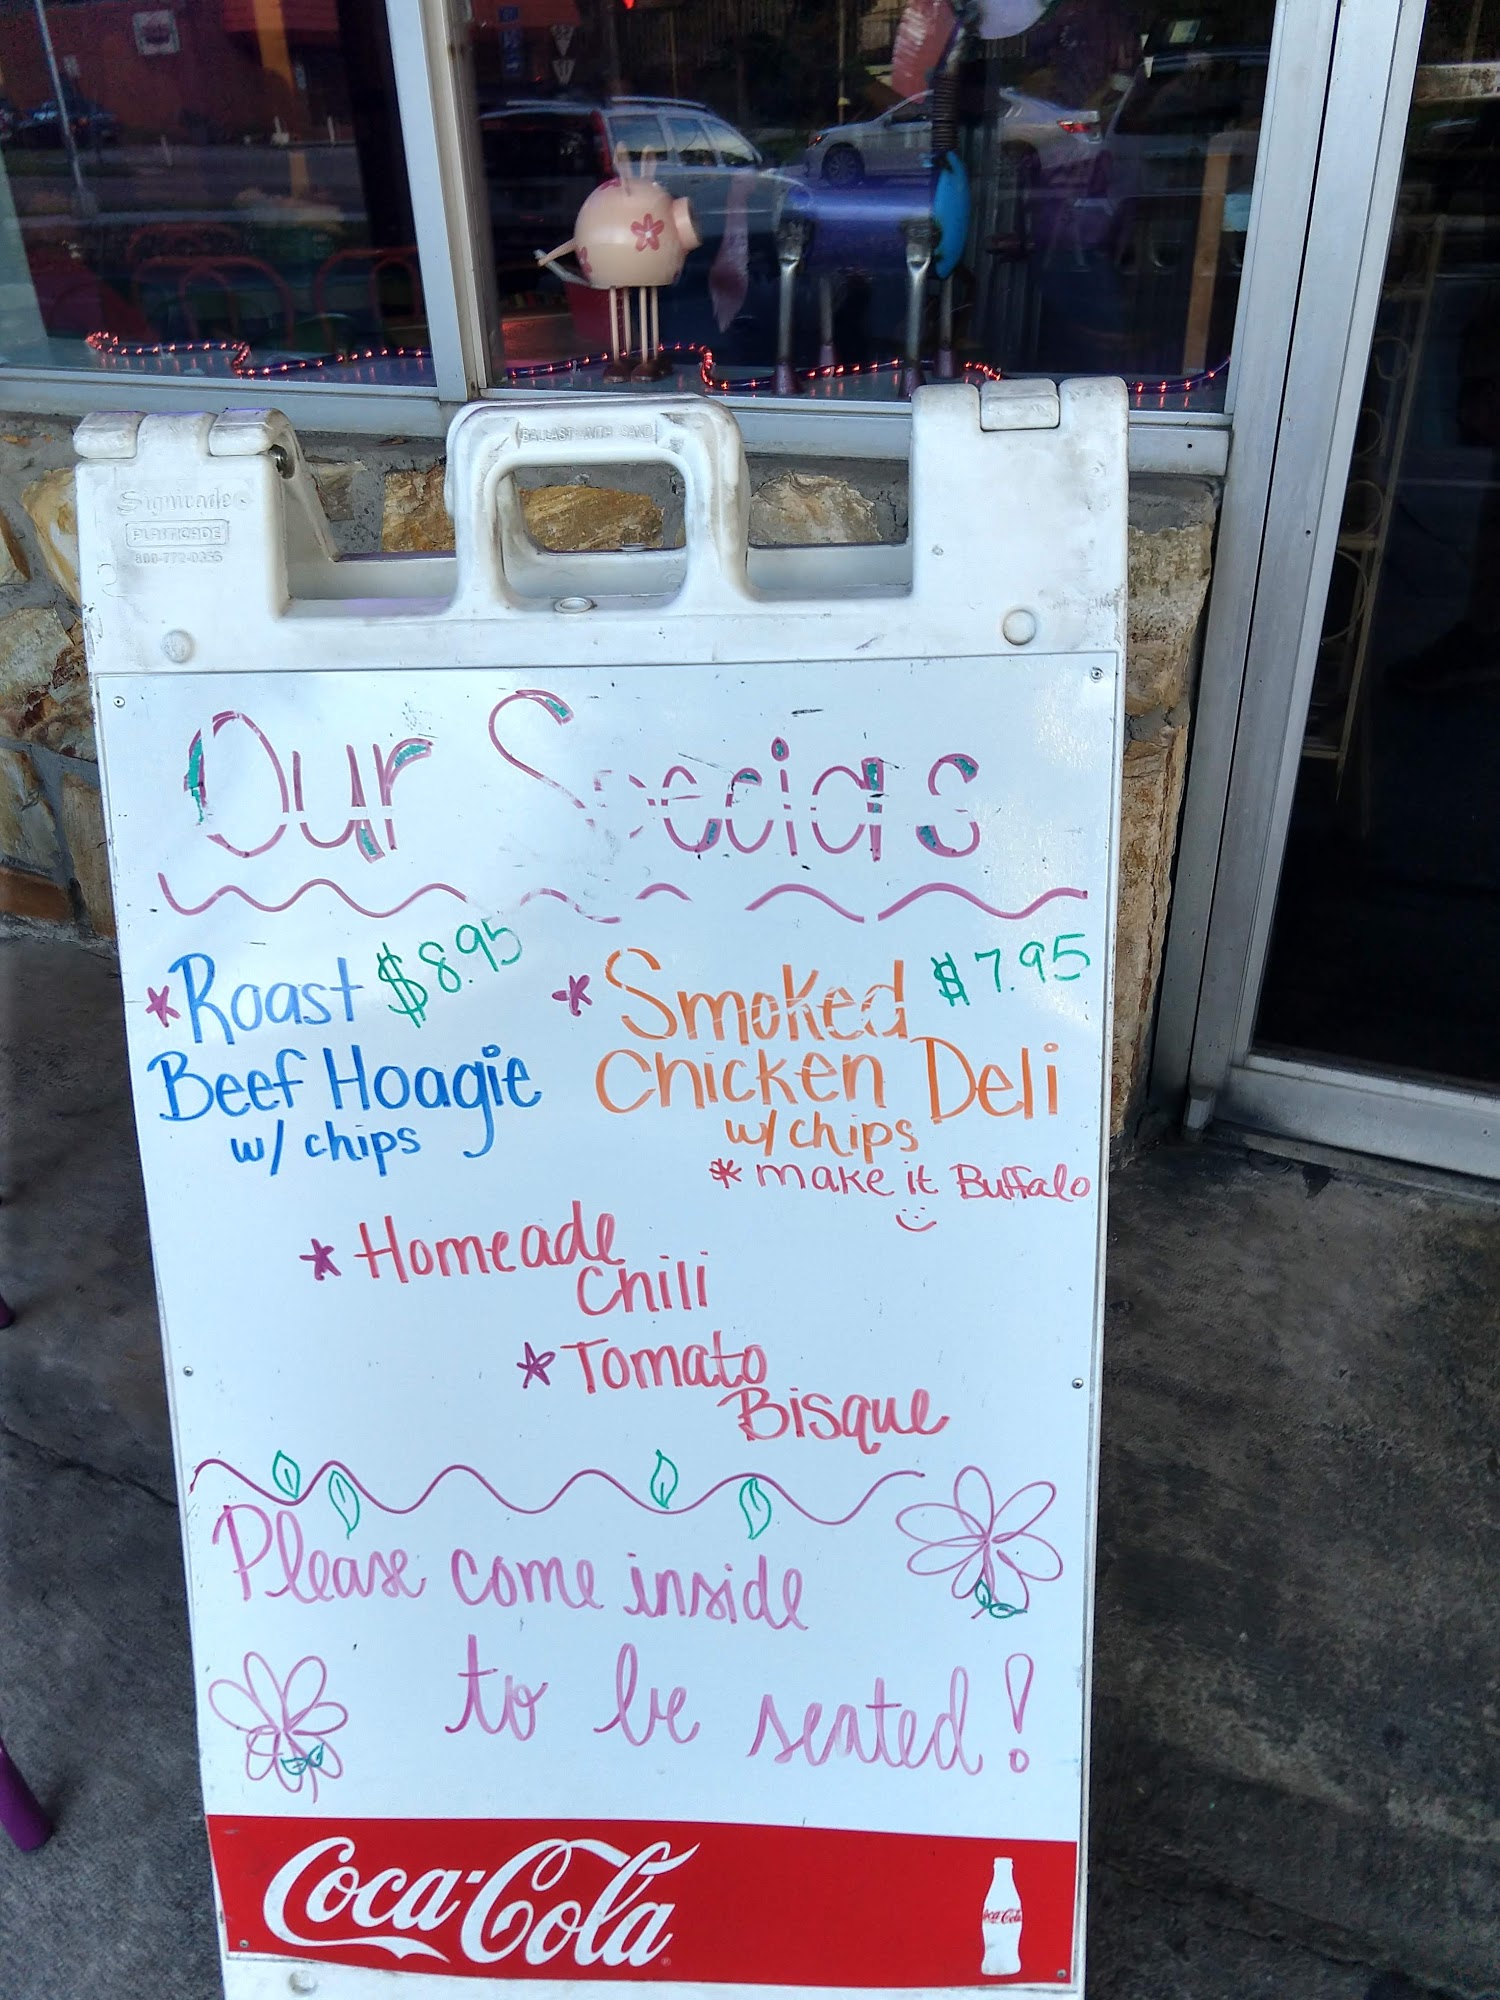 BALLAST WITH SAND
Signicade
PLASTICADE
800-772-0355
Our Specials
*Roast $8.95
Beef Hoagie
w/ chips
*Smoked $7.95
Chicken Deli
w/ chips
*make it Buffalo
*Homeade
Chili
*Tomato
Bisque
Please come inside
to be seated!
Coca-Cola
Coca-Cola